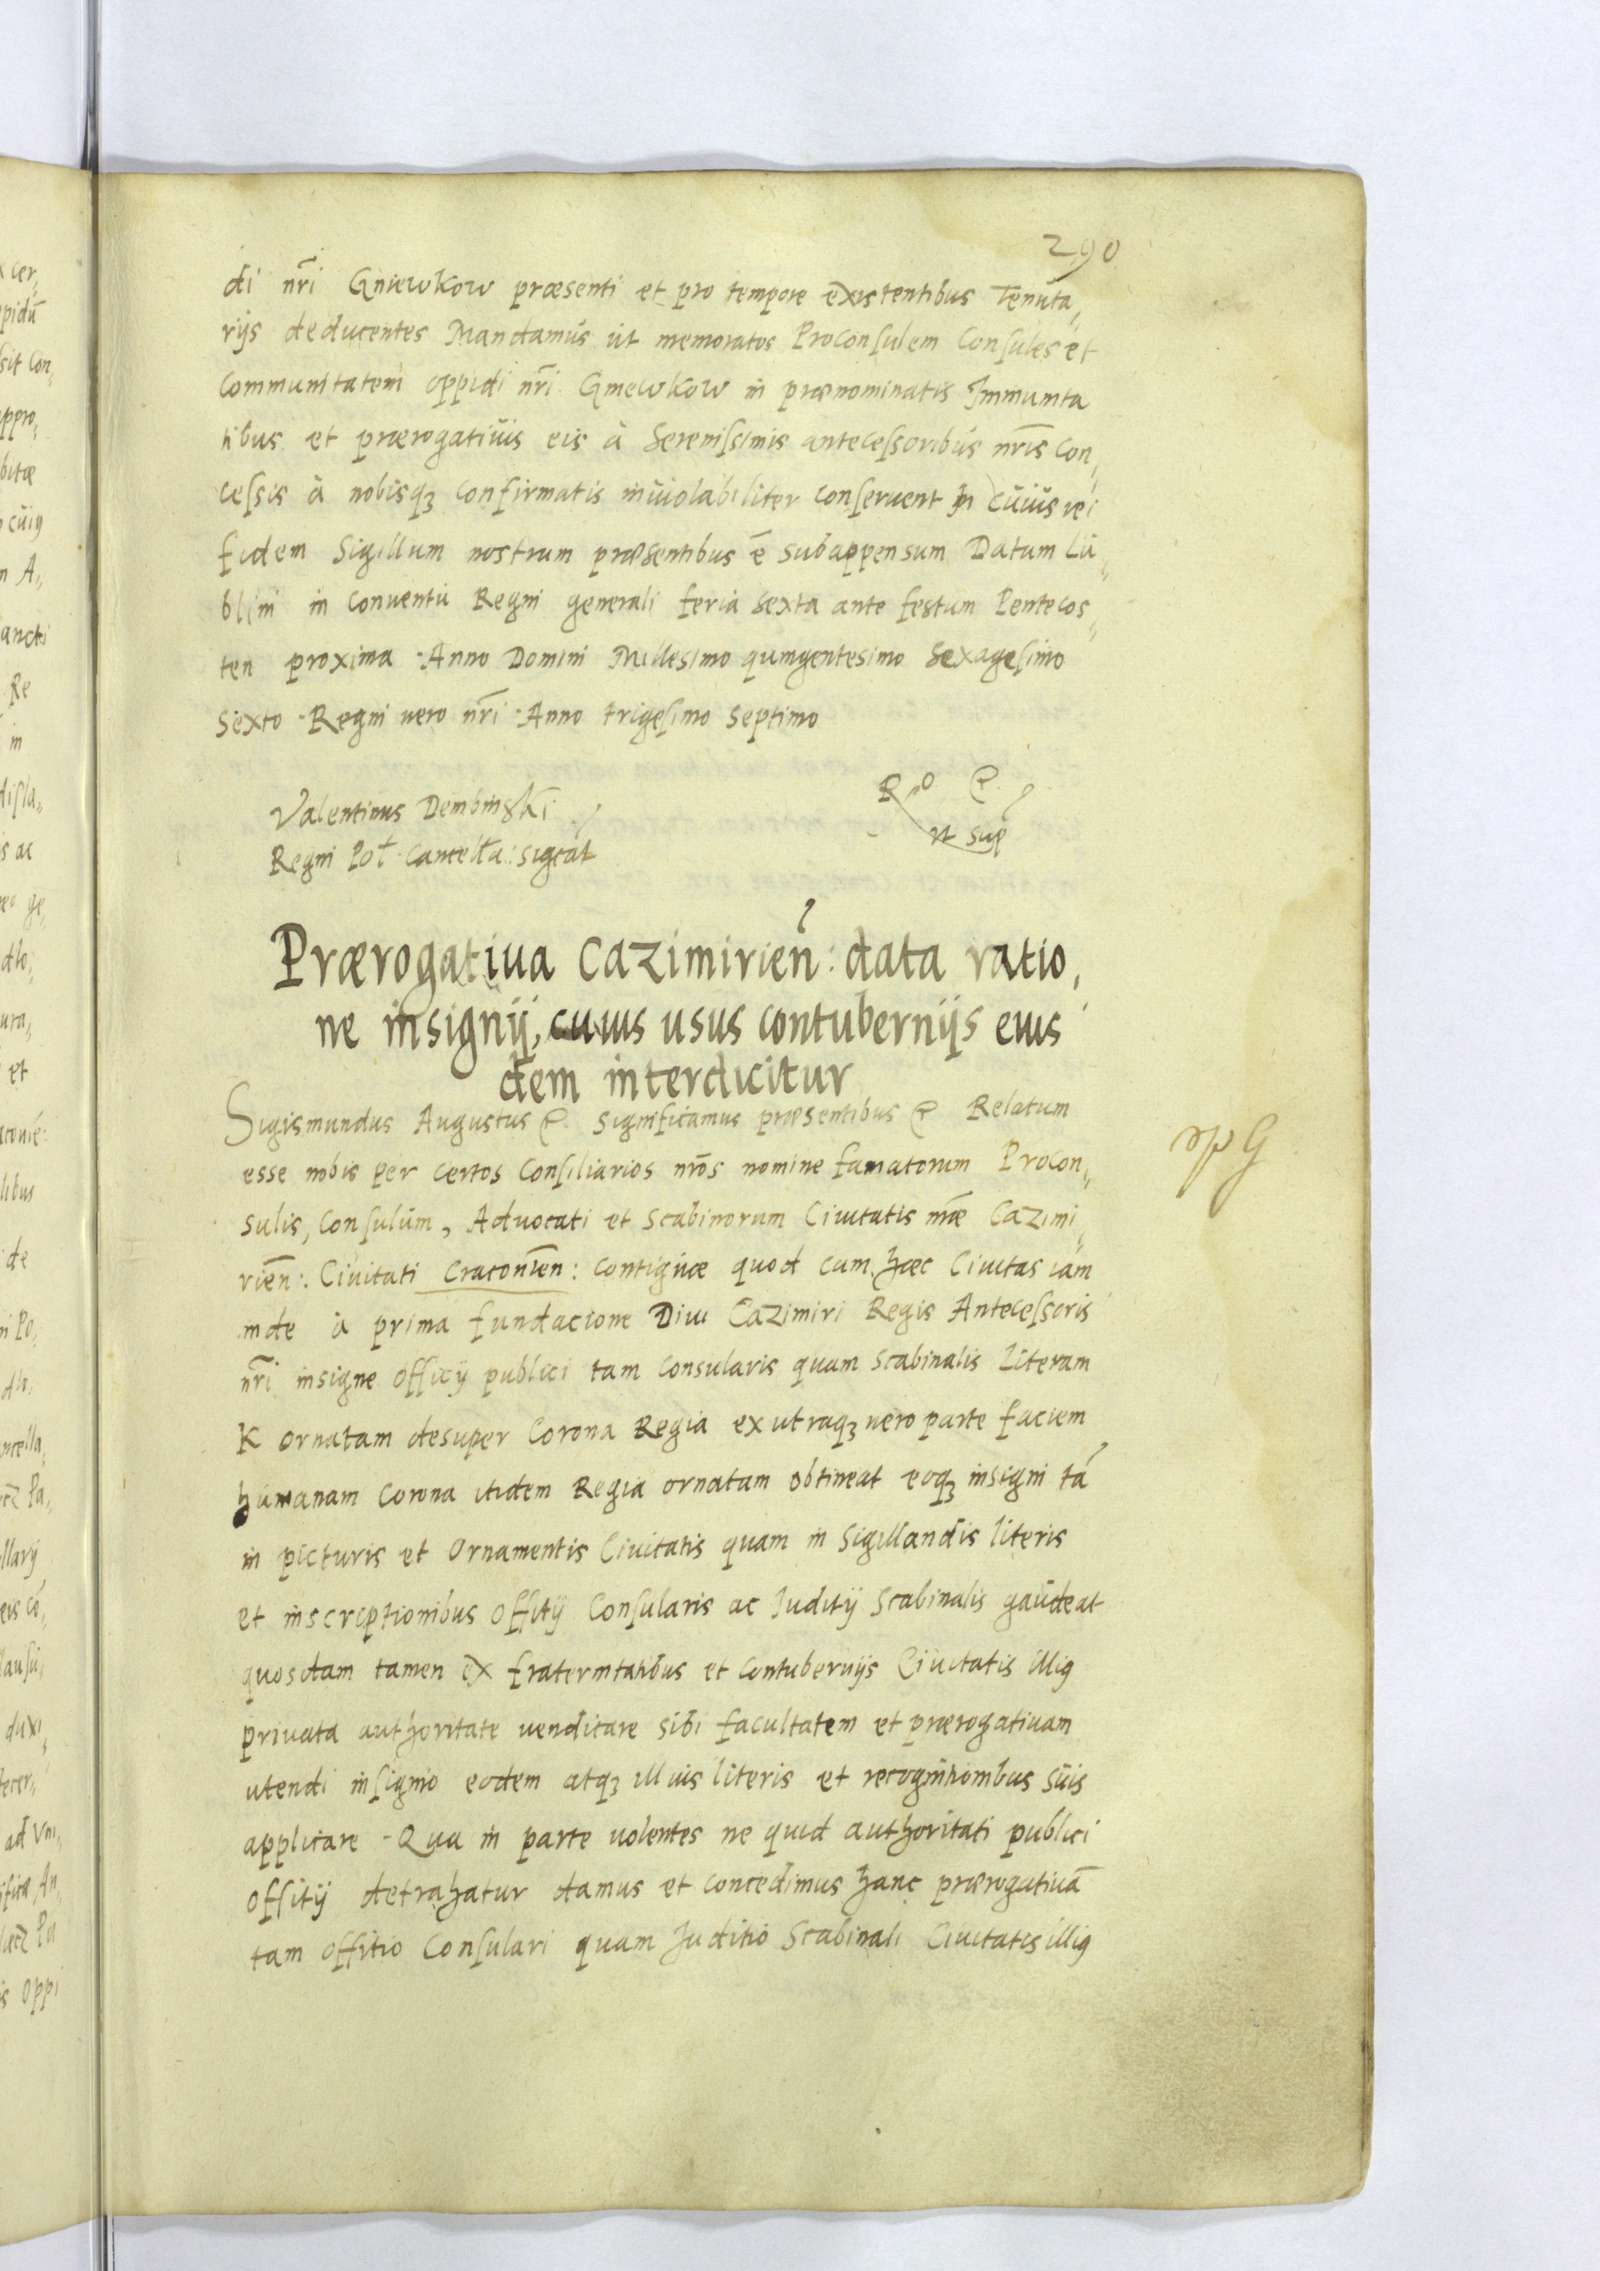 290
di nr̃i Gniewkow præsenti et pro tempore existentibus Tenuta,,
rijs deducentes Mandamus ut memoratos Proconsulem Consules et
Communitatem oppidi nr̃i Gniewkow in prænominatis Immunita
tibus et prærogativis eis à Serenissimis antecessoribus nr̃is con,,
cessis à nobisqꝫ confirmatis inviolabiliter conservent In cuius rei
fidem Sigillum nostrum præsentibus ẽ subappensum Datum Lu,,
blini in conventu Regni generali feria sexta ante festum Pentecos,,
ten proxima Anno Domini Millesimo quingentesimo Sexagesimo
Sexto Regni vero nr̃i Anno trigesimo septimo
Valentinus Dembinski
Regni Pol. Cancella: sigrat
R ut sup
Prærogativa Cazimirieñ: data ratio,
ne insignij, cuius usus contubernijs eius
dem interdicitur
Sigismundus Augustus &. Significamus præsentibus & Relatum
esse nobis per certos Consiliarios nr̃os nomine famatorum Procon,,
sulis, Consulum, Advocati et Scabinorum Civitatis nr̃æ Cazimi,,
rieñ: Civitati Cracovieñ: contiguæ quod cum hæc Civitas iam
inde à prima fundacione Divi Cazimiri Regis Antecessoris
nr̃i insigne officij publici tam Consularis quam Scabinalis Literam
K ornatam desuper Corona Regia ex utraqꝫ vero parte faciem
humanam corona itidem Regia ornatam obtineat eoqꝫ insigni tã
in picturis et Ornamentis Civitatis quam in Sigillandis literis
et inscrptionibus Offitij Consularis ac Juditij Scabinalis gaudeat
quosdam tamen ex fraternitatibus et contubernijs Civitatis illiꝰ
privata authoritate venditare sibi facultatem et prærogativam
utendi insignio eodem atqꝫ illius literis et recognitionibus suis
applicare Qua in parte volentes ne quid authoritati publici
offitij detrahatur damus et concedimus hanc prærogativã
tam offitio Consulari quam Juditio Scabinali Civitatis illiꝰ